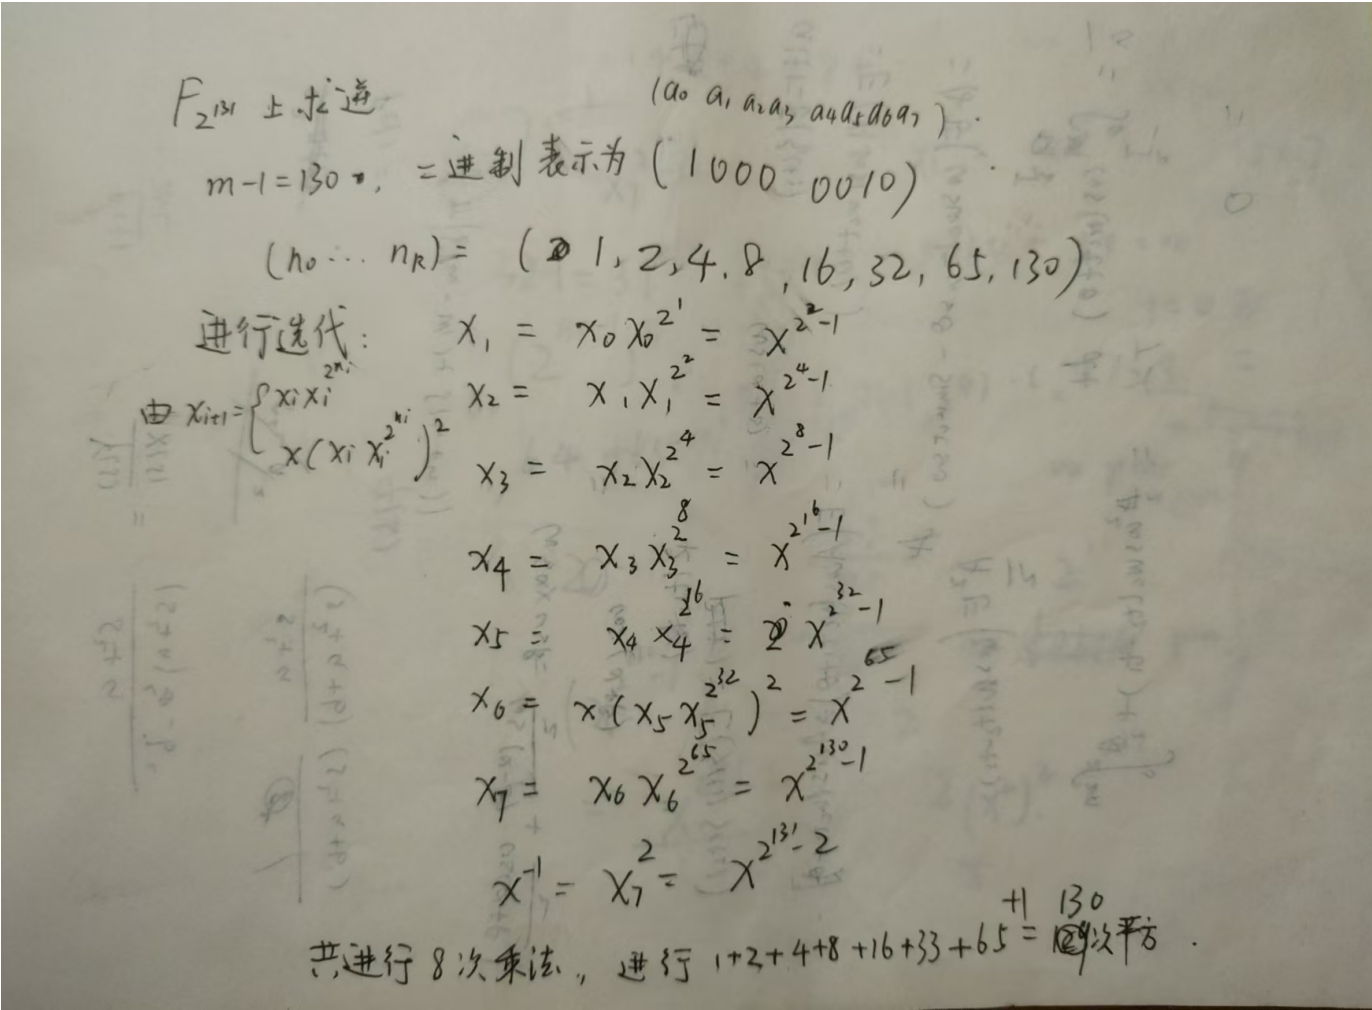 F_{2^{131}} 上求逆
(a_0 a_1 a_2 a_3 a_4 a_5 a_6 a_7).
m-1=130, 二进制表示为 (1000 0010)
(n_0 … n_k) = (1, 2, 4, 8, 16, 32, 65, 130)
进行迭代:
x_1 = x_0 x_0^{2^1} = x^{2^2-1}
由 x_{i+1} = { x_i x_i^{2^{n_i}}
x(x_i x_i^{2^{n_i}})^2
x_2 = x_1 x_1^{2^2} = x^{2^4-1}
x_3 = x_2 x_2^{2^4} = x^{2^8-1}
x_4 = x_3 x_3^{2^8} = x^{2^{16}-1}
x_5 = x_4 x_4^{2^{16}} = x^{2^{32}-1}
x_6 = x(x_5 x_5^{2^{32}})^2 = x^{2^{65}-1}
x_7 = x_6 x_6^{2^{65}} = x^{2^{130}-1}
x^{-1} = x_7^2 = x^{2^{131}-2}
共进行8次乘法, 进行 1+2+4+8+16+33+65+1=130次平方.